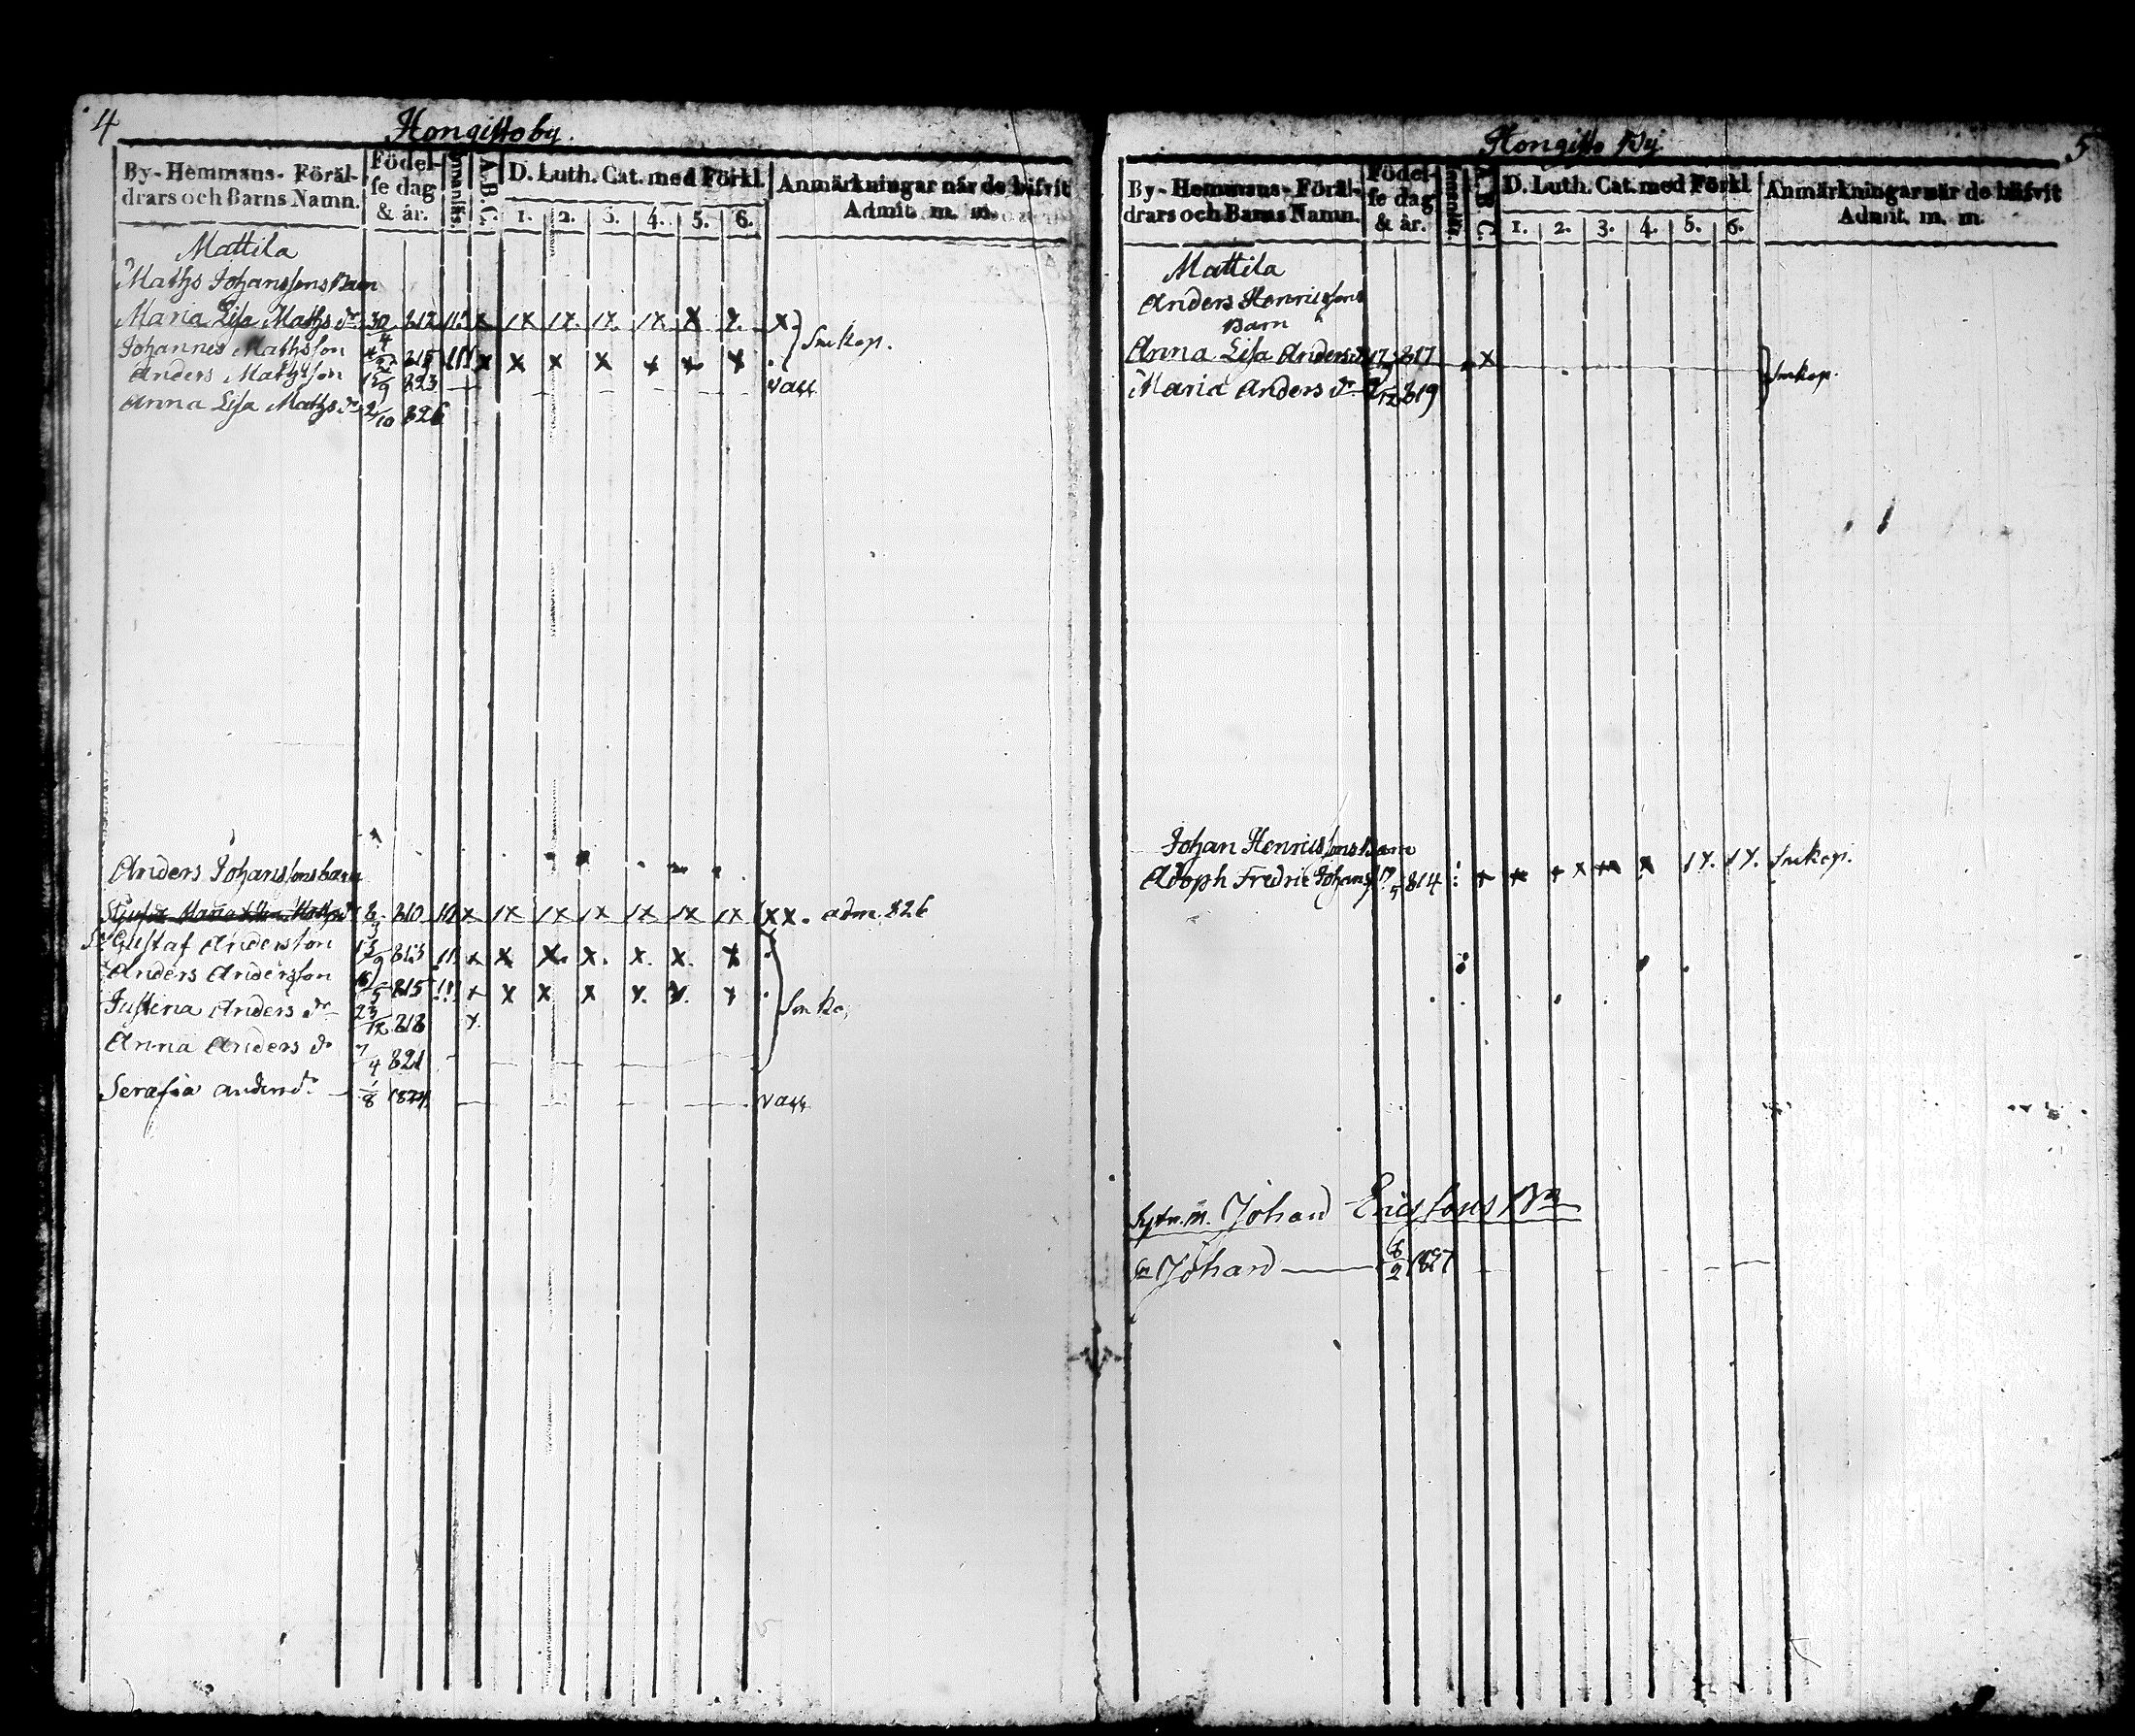 4
Hongitto by.
By-Hemmans-Föräl-
drars och Barns Namn.
Födel-
se dag
& år.
A. B. C.
D. Luth. Cat. med Förkl.
1. 2. 3. 4. 5. 6.
Anmärkningar när de blifvit
Admit. m. m.
Mattila
Maths Johanssons Barn
Maria Lisa Maths dr 30/4 812 x 1x 1x 1x 1x x x x
Johannes Mathsson 815 x x x x x x x
Smkop.
Anders Mathsson 823 vacc
Anna Lisa Maths dr 2/10 826
Anders Johanssons barn
8/3 810 x 1x 1x 1x 1x 1x 1x xx. adm. 826
Gustaf Andersson 813 x x x. x. x. x. x
Anders Andersson 815 x x x x x. x. x
Justina Anders dr 23/12 818 x.
Anna Anders dr 7/4 821
Serafia anders dr 1/8 1824 vacc
5
Hongitto By
By-Hemmans-Föräl-
drars och Barns Namn.
Födel-
se dag
& år.
A. B. C.
D. Luth. Cat. med Förkl
1. 2. 3. 4. 5. 6.
Anmärkningar när de blifvit
Admit. m. m.
Mattila
Anders Henricssons
Barn
Anna Lisa Anders dr 817 x
Maria Anders dr 9/12 819
Smkop.
Johan Henricssons Barn
Adoph Fredric Johans 814 x x x x x x 1x. 1x. Smkop.
Johan Ericssons Bn
Sn Johan 8/2 1827